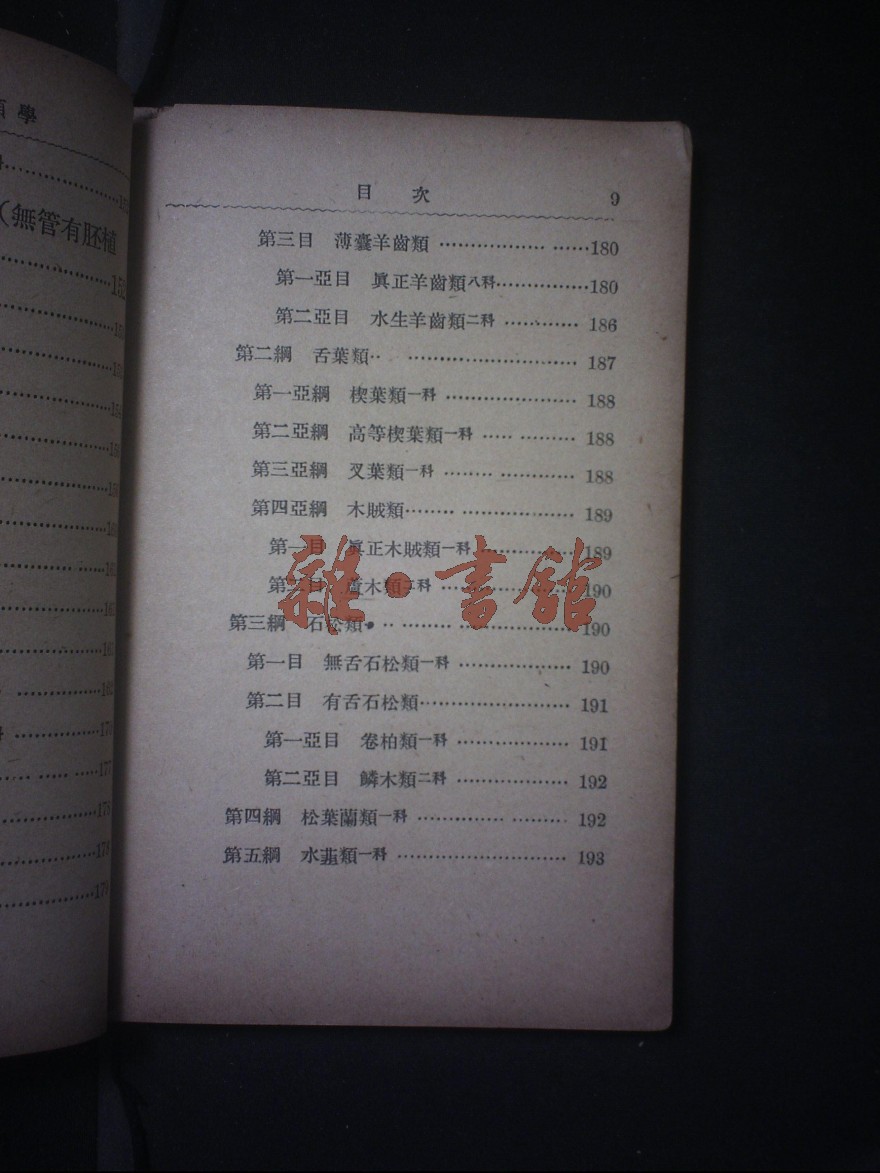 類學
(無管有胚植
目 次 9
第三目 薄囊羊齒類 ……………… ……180
第一亞目 眞正羊齒類八科……………180
第二亞目 水生羊齒類二科 ………… 186
第二綱 舌葉類‥ ……………………… 187
第一亞綱 楔葉類一科 ………………… 188
第二亞綱 高等楔葉類一科 …… ……… 188
第三亞綱 叉葉類一科 ……… ………… 188
第四亞綱 木賊類……… ……………… 189
第一目 眞正木賊類一科 ……………… 189
第二目 蘆木類二科 ………………… 190
第三綱 石松類 ‥ ……… ……………… 190
第一目 無舌石松類一科 ……………… 190
第二目 有舌石松類…………………… 191
第一亞目 卷柏類一科 ……………… 191
第二亞目 鱗木類二科 ……………… 192
第四綱 松葉蘭類一科 …………… ……… 192
第五綱 水韮類一科 ……………………… 193
雜·書館